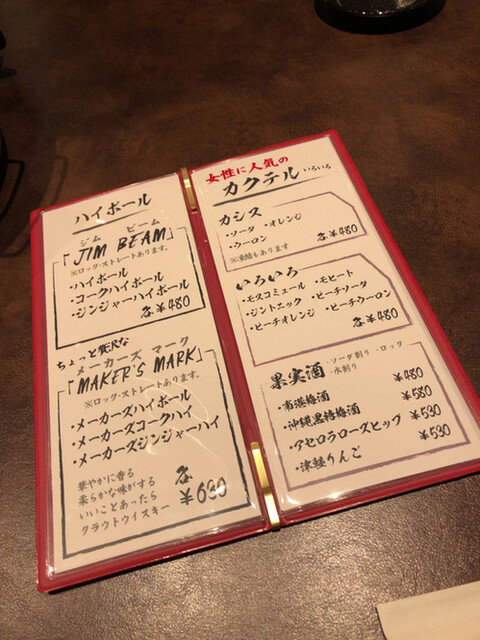 ハイボール
ジム ビーム
「JIM BEAM」
※ロック・ストレートあります。
・ハイボール
・コークハイボール
・ジンジャーハイボール
各¥480
ちょっと贅沢な
メーカーズ マーク
「MAKER'S MARK」
※ロック・ストレートあります。
・メーカーズハイボール
・メーカーズコークハイ
・メーカーズジンジャーハイ
華やかに香る
柔らかな味がする
いいことあったら
クラフトウイスキー
各¥630
女性に人気の
カクテルいろいろ
カシス
・ソーダ ・オレンジ
・ウーロン
各¥480
いろいろ
・モスコミュール ・モヒート
・ジントニック ・ピーチソーダ
・ピーチオレンジ ・ピーチウーロン
各¥480
果実酒 ・ソーダ割り ・ロック
・水割り
・南港梅酒 ¥480
・沖縄黒糖梅酒 ¥580
・アセロラローズヒップ ¥530
・津軽りんご ¥530